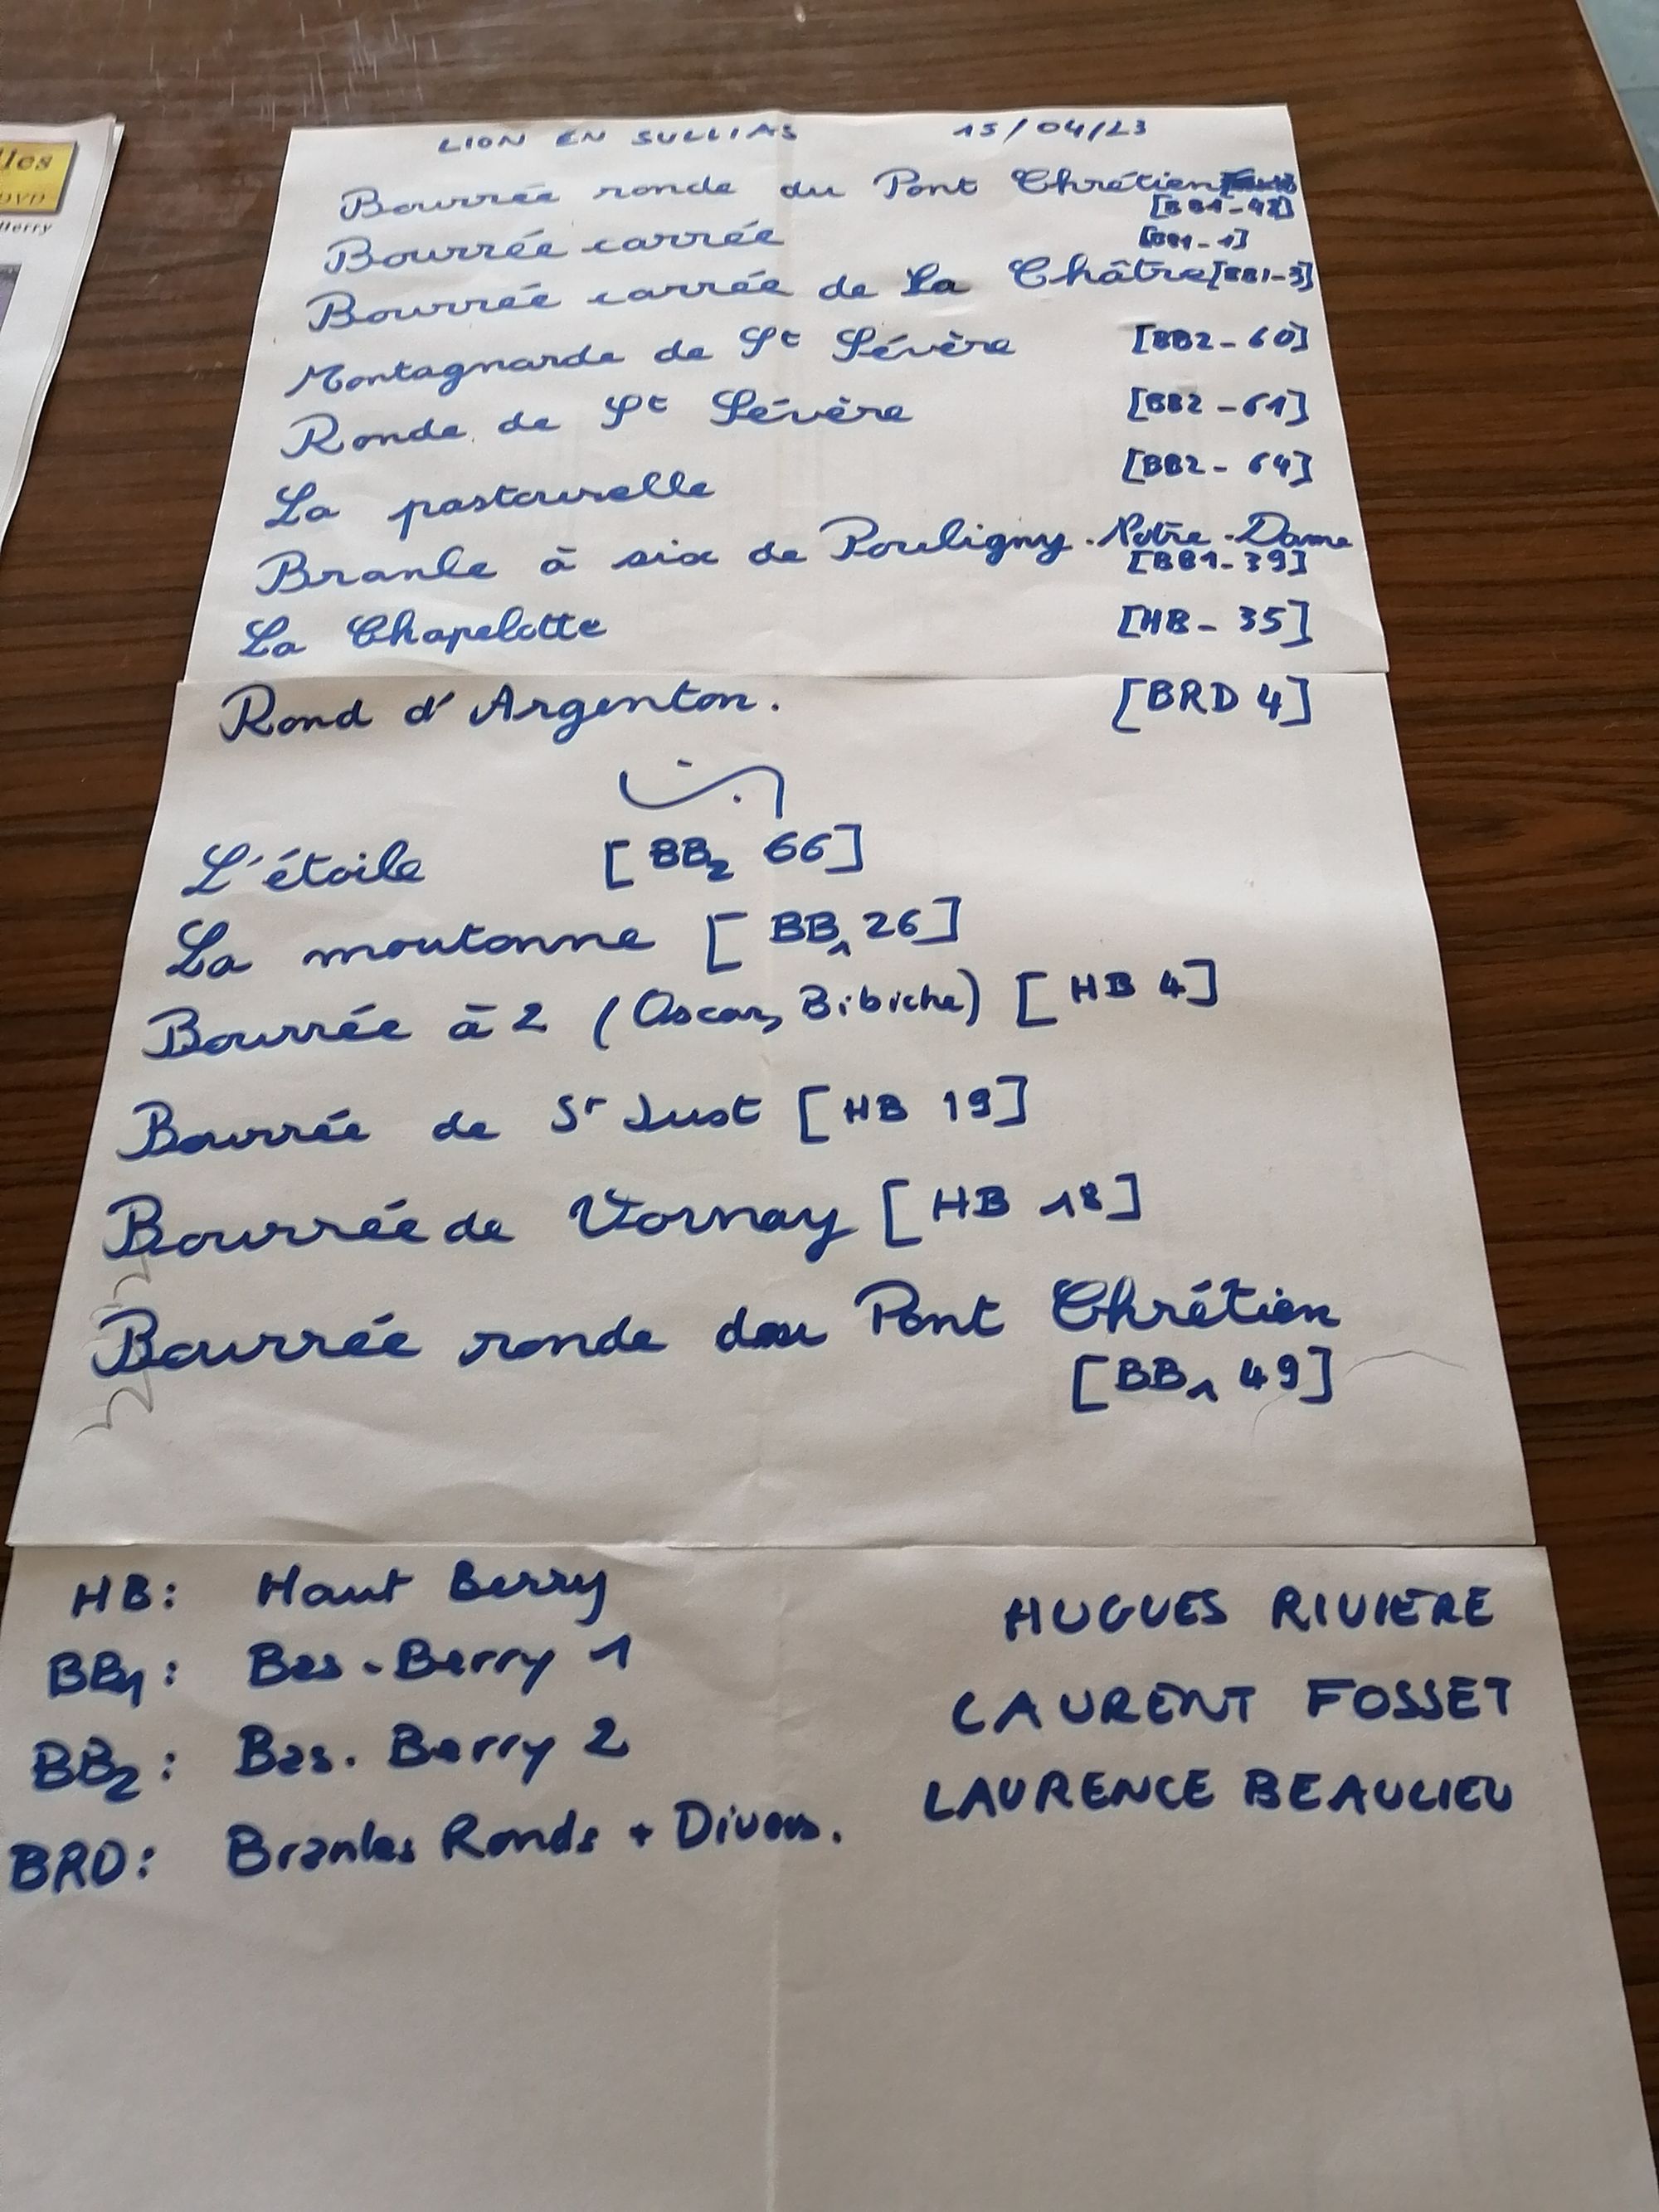 lies
DVD
Berry
LION EN SULLIAS 15/04/23
Bourrée ronde du Pont Chrétien
Bourrée carrée [BB1-1]
Bourrée carrée de La Châtre [BB1-3]
Montagnarde de St Sévère [BB2-60]
Ronde de St Sévère [BB2-61]
La pastourelle [BB2-64]
Branle à six de Pouligny-Notre-Dame
[BB1-39]
La Chapelotte [HB-35]
Rond d'Argenton. [BRD 4]
L'étoile [BB2 66]
La moutonne [BB1 26]
Bourrée à 2 (Oscar, Bibiche) [HB 4]
Bourrée de St Just [HB 19]
Bourrée de Vornay [HB 18]
Bourrée ronde du Pont Chrétien
[BB1 49]
HB: Haut Berry
BB1: Bas-Berry 1
BB2: Bas-Berry 2
BRD: Branles Ronds + Divers.
HUGUES RIVIERE
LAURENT FOSSET
LAURENCE BEAULIEU